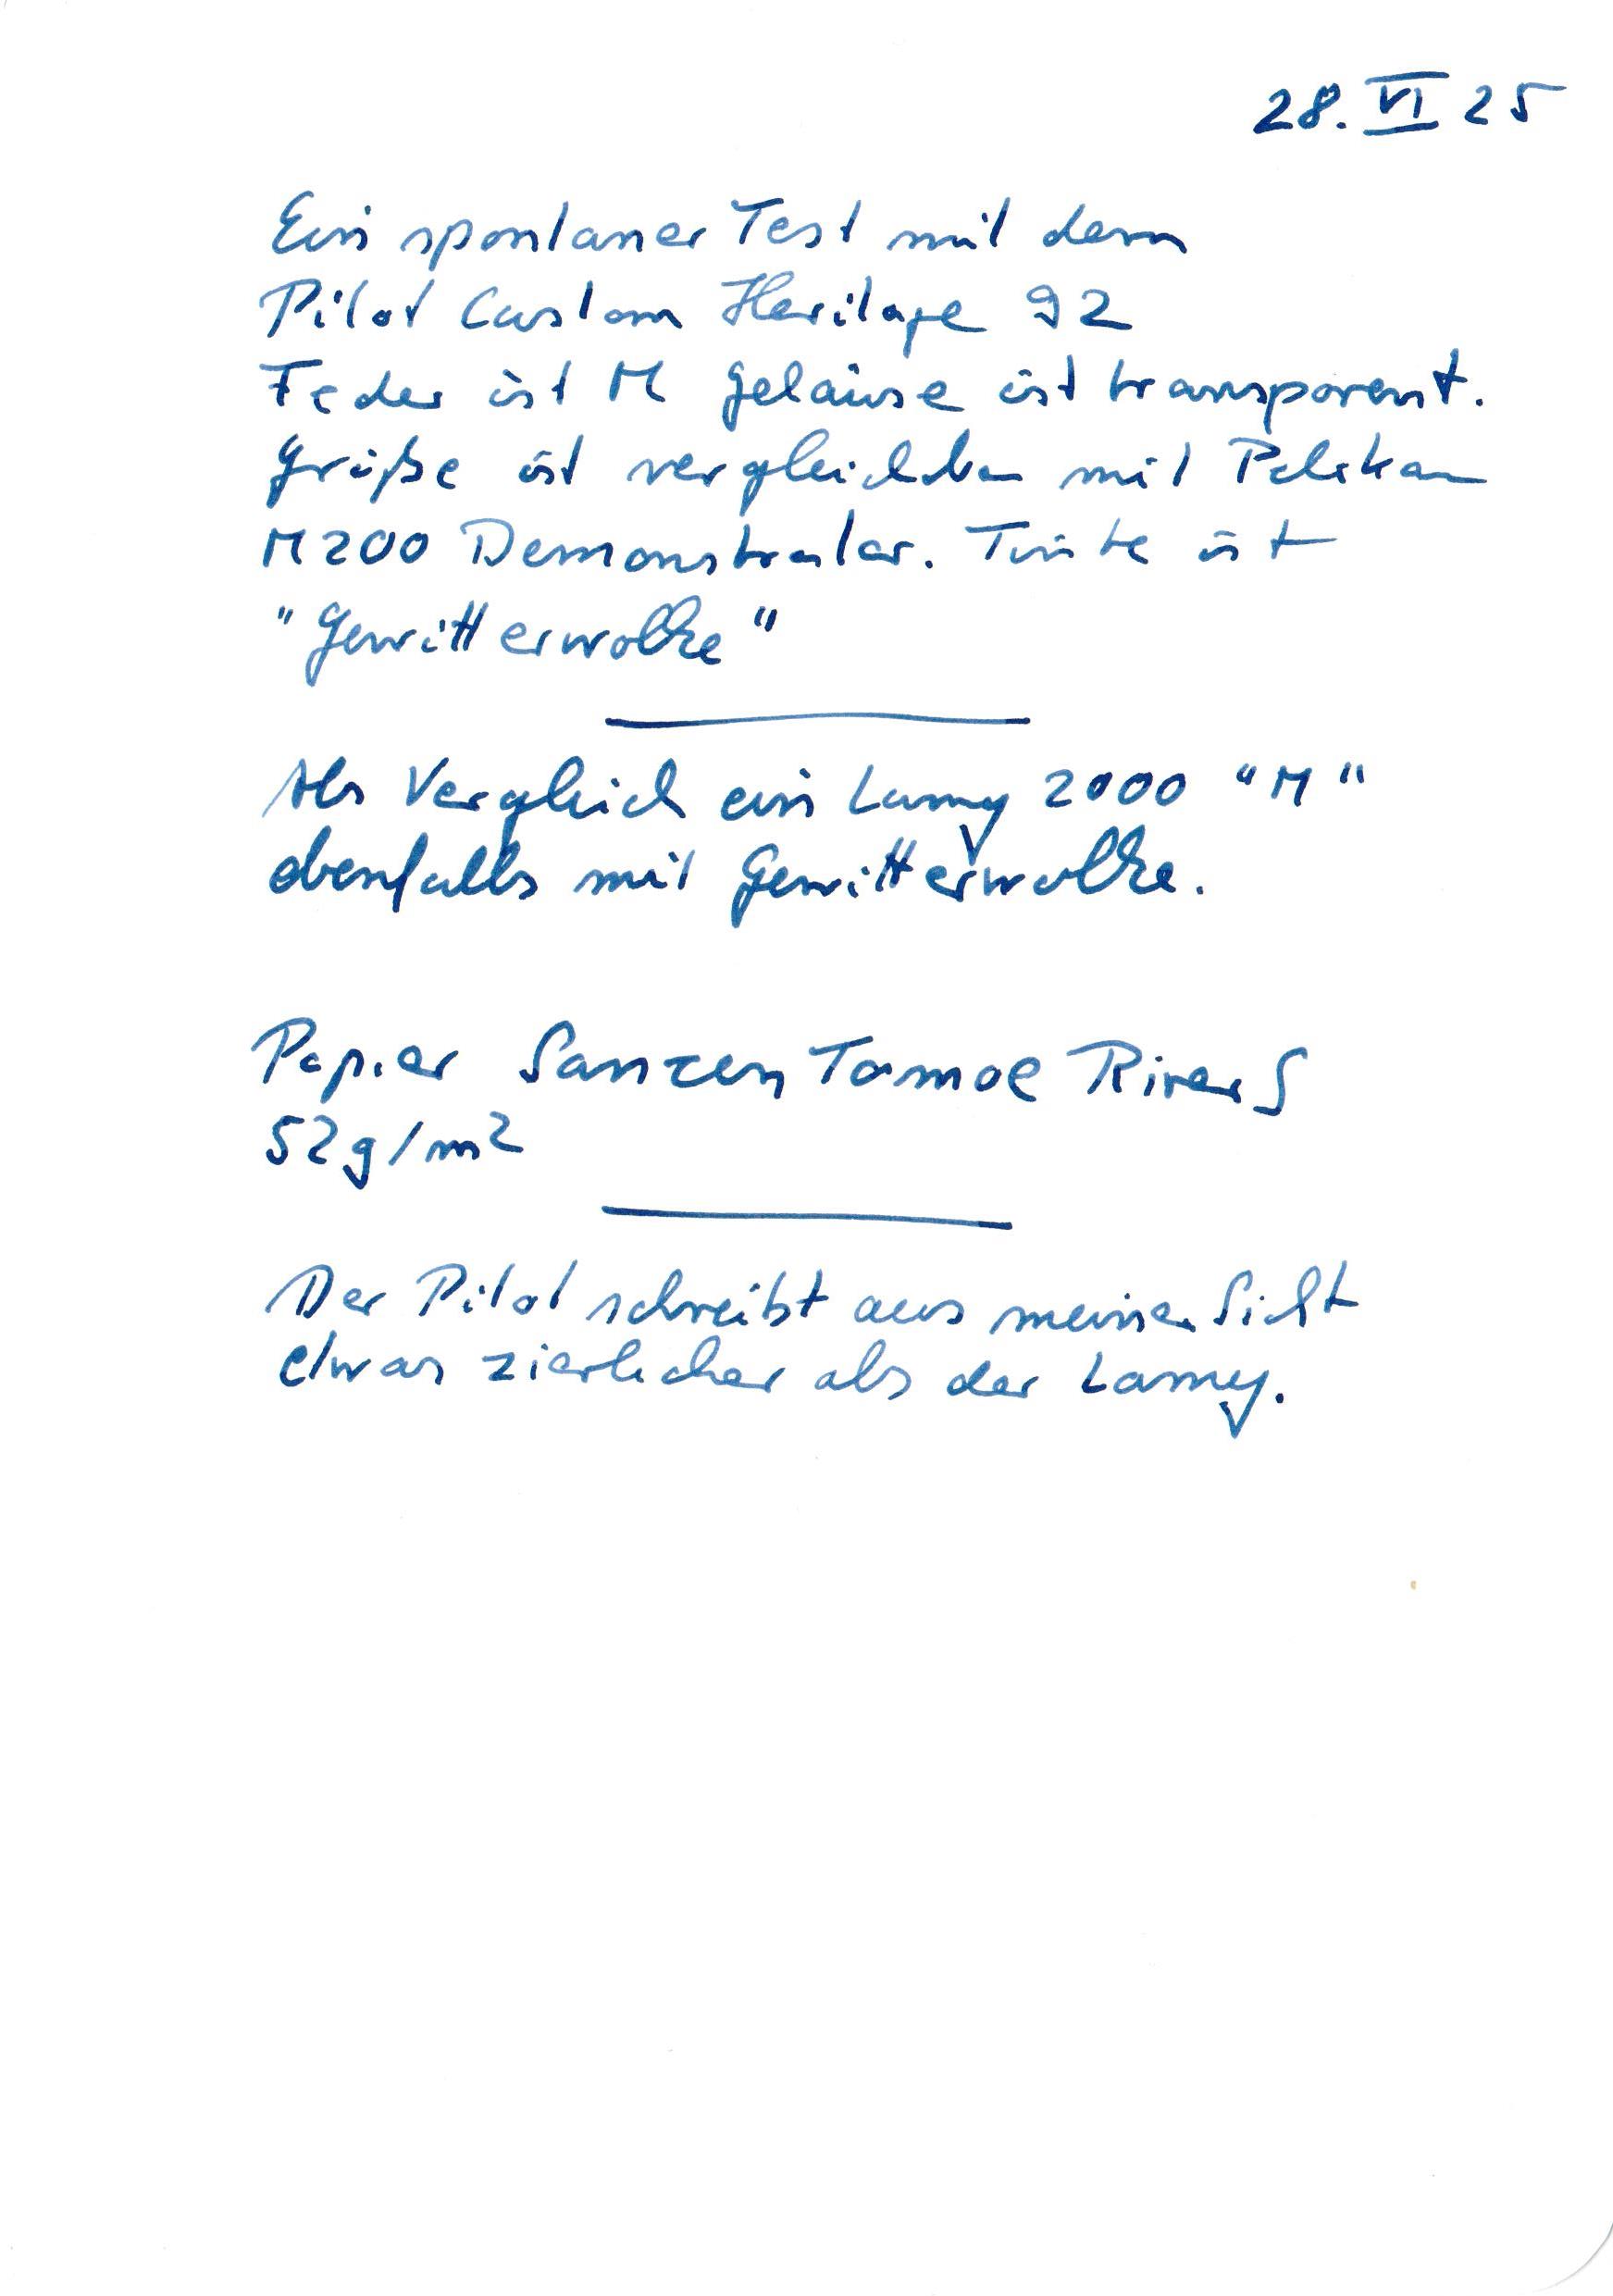 28. VI 25
Ein spontaner Test mit dem
Pilot Custom Heritage 92
Feder ist M Gehäuse ist transparent.
Größe ist vergleichbar mit Pelikan
M200 Demonstrator. Tinte ist
"Gewitterwolke"
Als Vergleich ein Lamy 2000 "M"
ebenfalls mit Gewitterwolke.
Papier Sanzen Tomoe River S
52g/m²
Der Pilot schreibt aus meiner Sicht
etwas zierlicher als der Lamy.